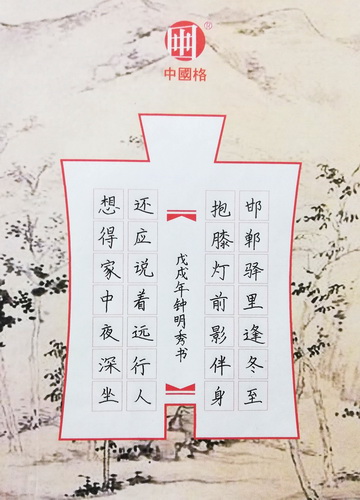 中國格
邯郸驿里逢冬至
抱膝灯前影伴身
戊戌年钟明秀书
还应说着远行人
想得家中夜深坐